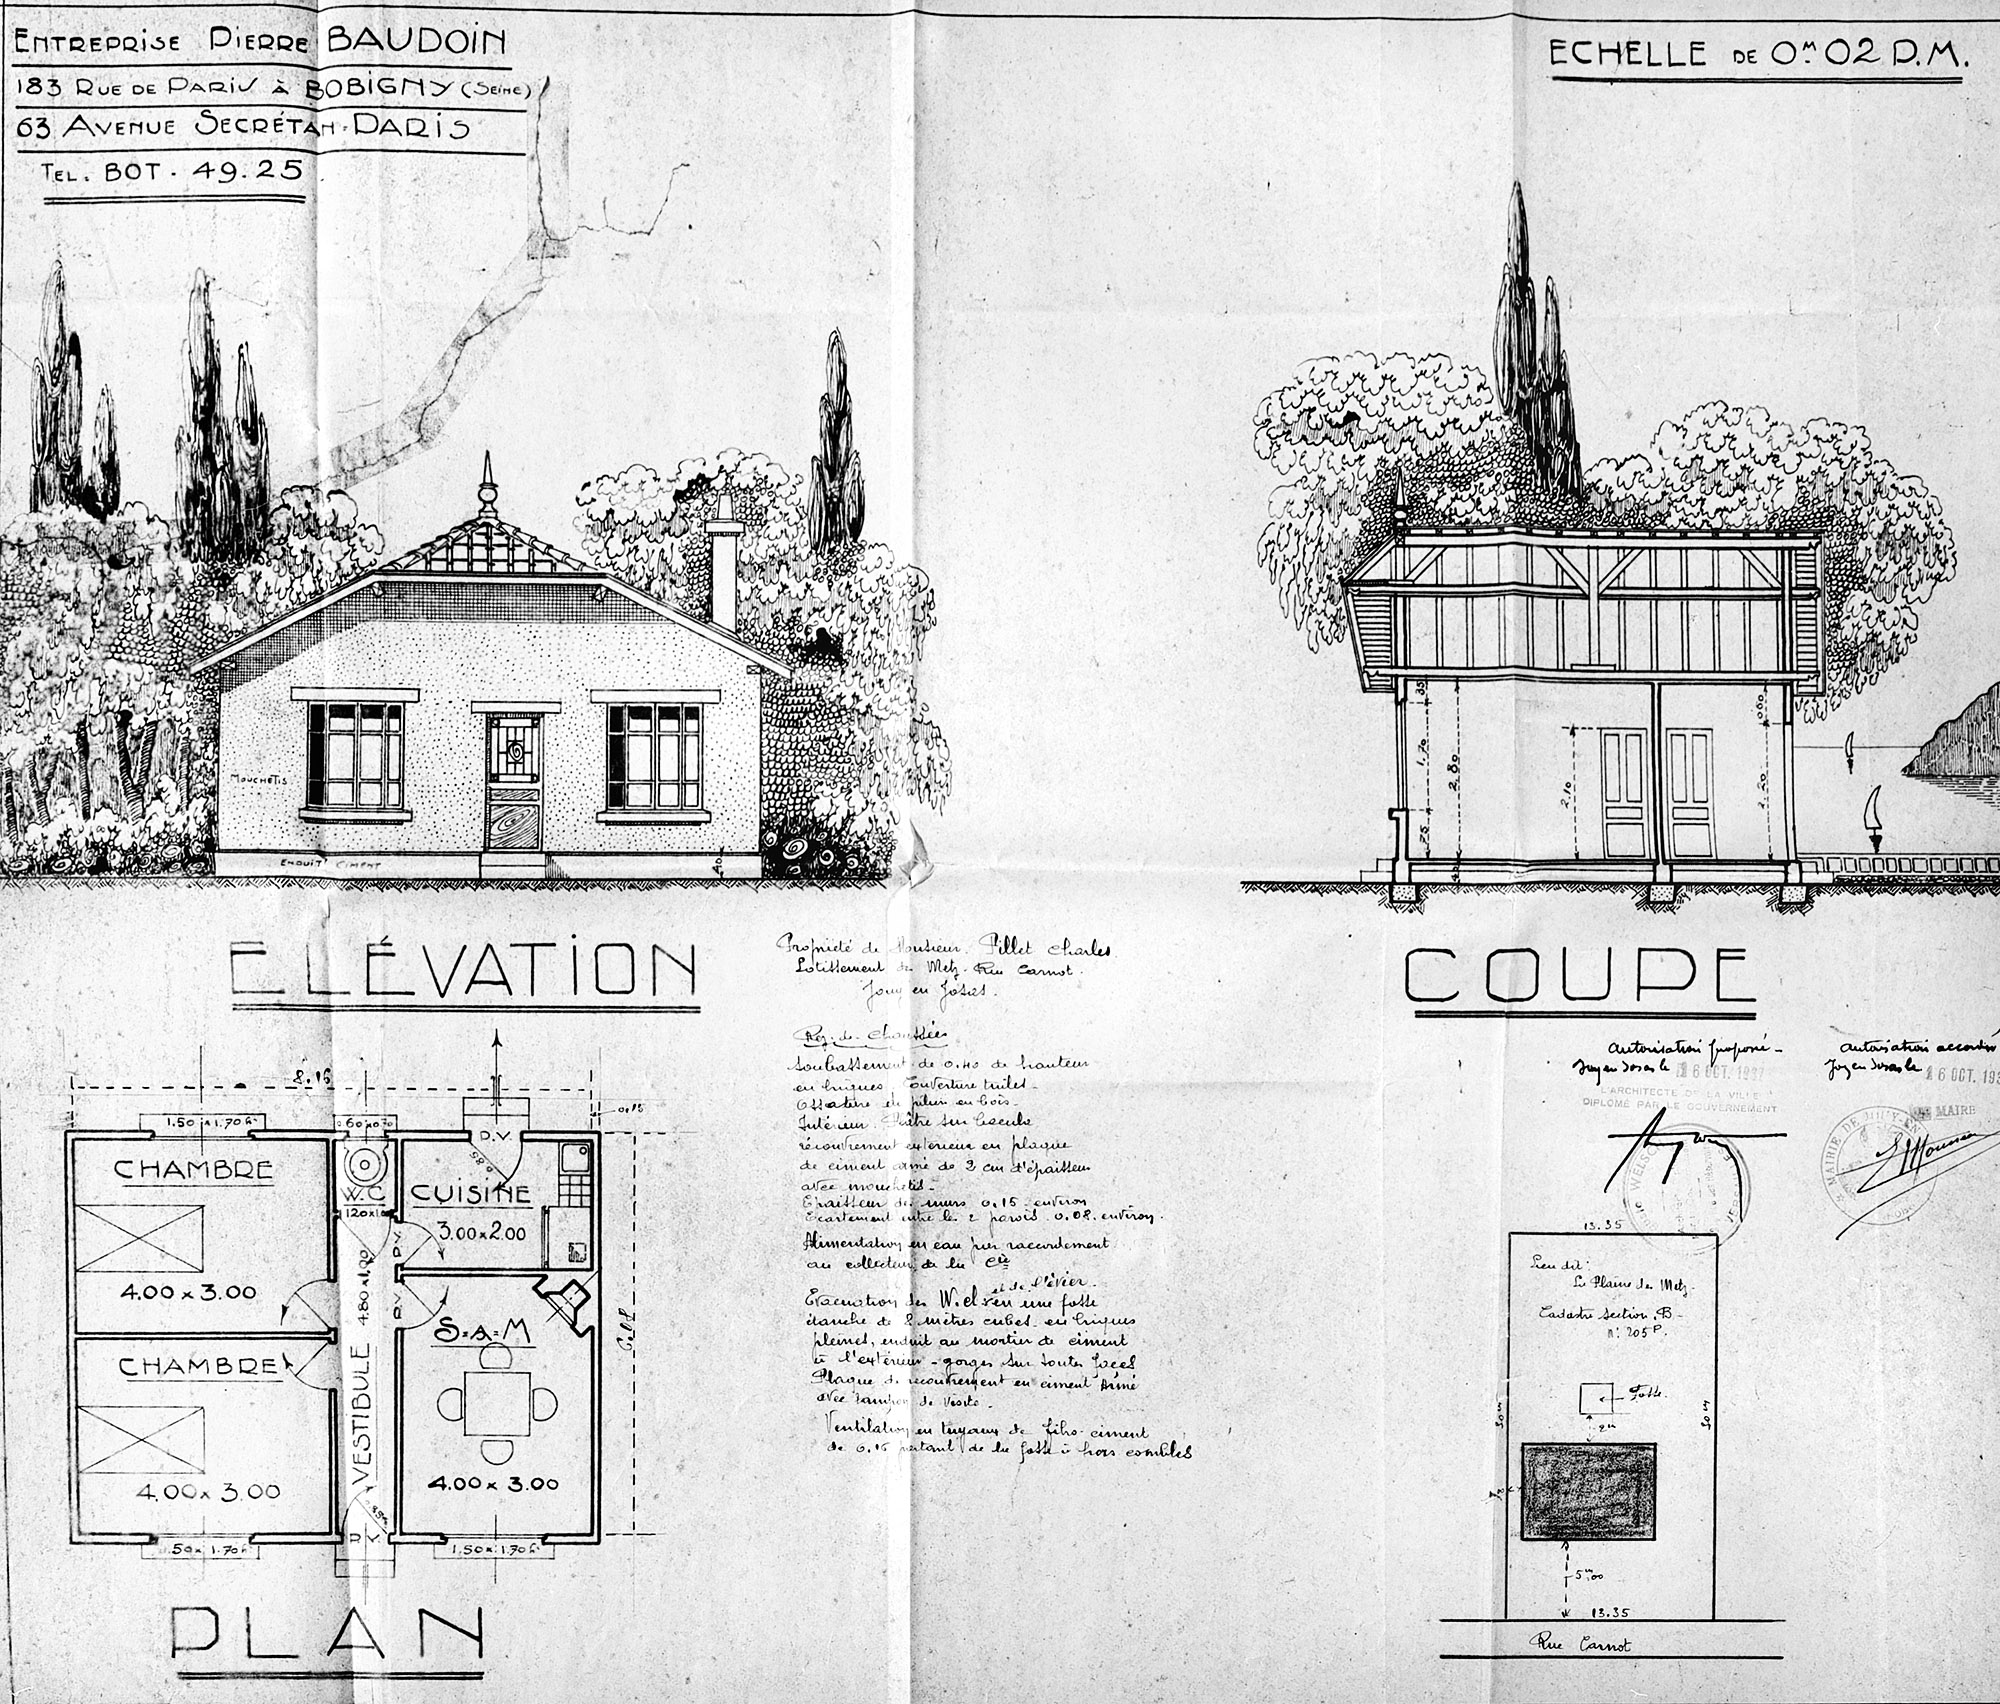 ENTREPRISE PIERRE BAUDOIN
183 RUE DE PARIS À BOBIGNY (SEINE)
63 AVENUE SECRÉTAN - PARIS
TEL. BOT. 49.25
ECHELLE DE 0M 02 P.M.
MOUCHETIS
ENDUIT CIMENT
.40
.35
1.70
2.80
.75
2.10
0.60
2.20
ELÉVATION
COUPE
Propriété de Monsieur Pillet Charles
Lotissement de Metz. Rue Carnot.
Jouy en Josas.
Rez-de-Chaussée
Soubassement de 0.40 de hauteur
en briques, Couverture tuiles -
Ossature en pitchpin en bois -
Intérieur plâtre sur bacula
recouvrement extérieur en plaque
de ciment armé de 2 cm d'épaisseur
avec mouchetis -
Epaisseur des murs 0.15 environ
Ecartement entre les 2 parois 0.08 environ.
Alimentation en eau par raccordement
au collecteur de la Cie
et de l'évier -
Evacuation des W.cl en une fosse
étanche de 2 mètres cubes en briques
pleines, enduit au mortier de ciment
à l'extérieur - gorges sur toutes faces
Plaque de recouvrement en ciment armé
avec tampon de visite -
Ventilation en tuyaux de fibro-ciment
de 0.15 partant de la fosse à hors combles
Autorisation proposé -
Jouy en Josas le 16 OCT. 1937
ARCHITECTE DE LA VILLE
DIPLOMÉ PAR LE GOUVERNEMENT
Autorisation accordée
Jouy en Josas le 16 OCT. 193
LE MAIRE
8.15
0.15
1.50 x 1.70 h
60 x 0.70
P.V
0.85
CHAMBRE
W.C
CUISINE
3.00 x 2.00
4.00 x 3.00
P.V
P.V
S=A=M
CHAMBRE
VESTIBULE 4.80 x 1.00
4.00 x 3.00
4.00 x 3.00
P.V
1.50 x 1.70 h
1.50 x 1.70 h
PLAN
13.35
Lieu dit:
La Plaine de Metz
Cadastre section B -
n° 205 P.
Fosse
2m
50m
50m
5m00
13.35
Rue Carnot